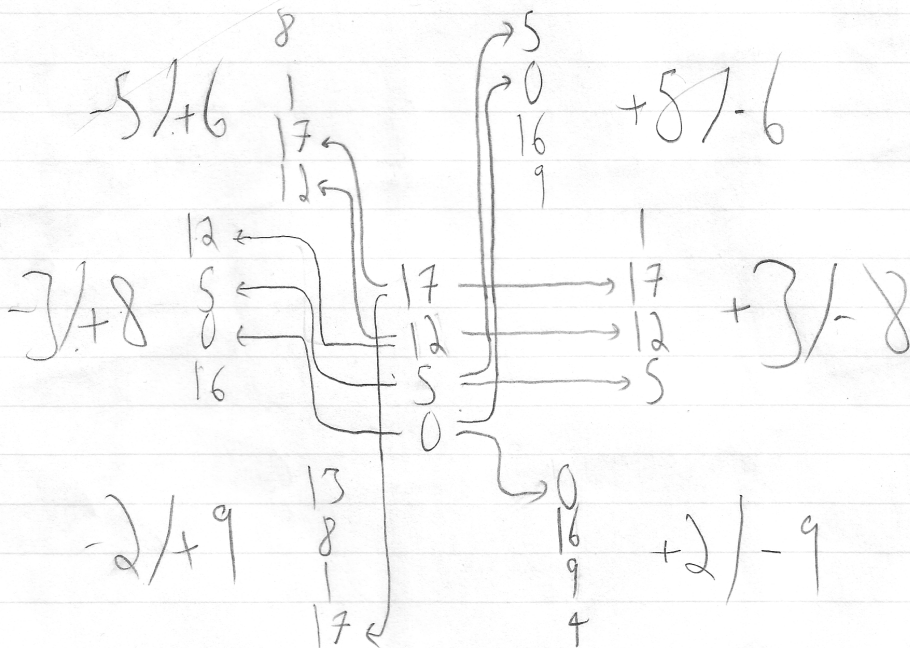 8
-5/+6
1
17
12
5
0
16
9
+5/-6
12
5
0
16
-3/+8
17
12
5
0
1
17
12
5
+3/-8
13
8
1
17
-2/+9
0
16
9
4
+2/-9